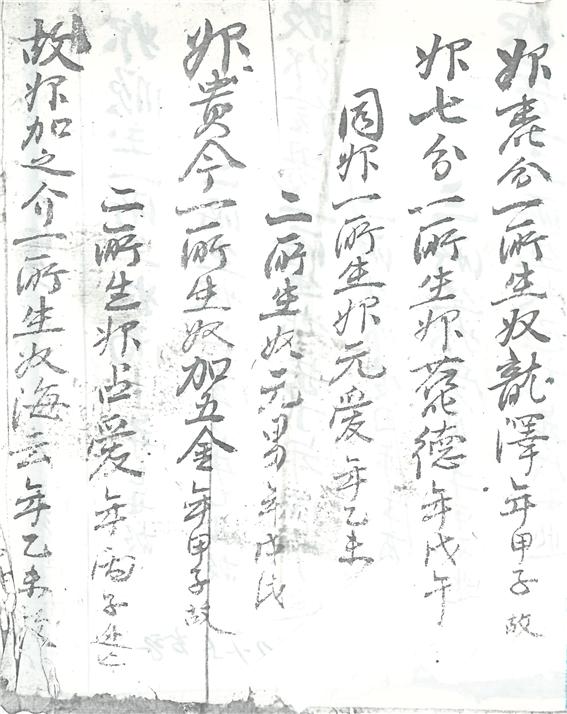 婢春分一所生奴龍澤年甲子故
婢七分一所生婢蓖德年戊午
同婢一所生婢元愛年乙未
二所生奴元男年戊戌
婢貴今一所生奴加五金年甲子故
二所生婢占愛年丙子逃亡
故婢加之介一所生奴海云年乙未故